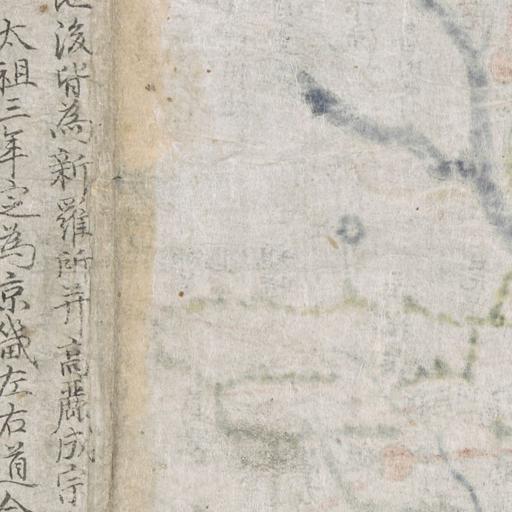 後皆為新羅所并高麗成宗
太祖三年定為京畿左右道